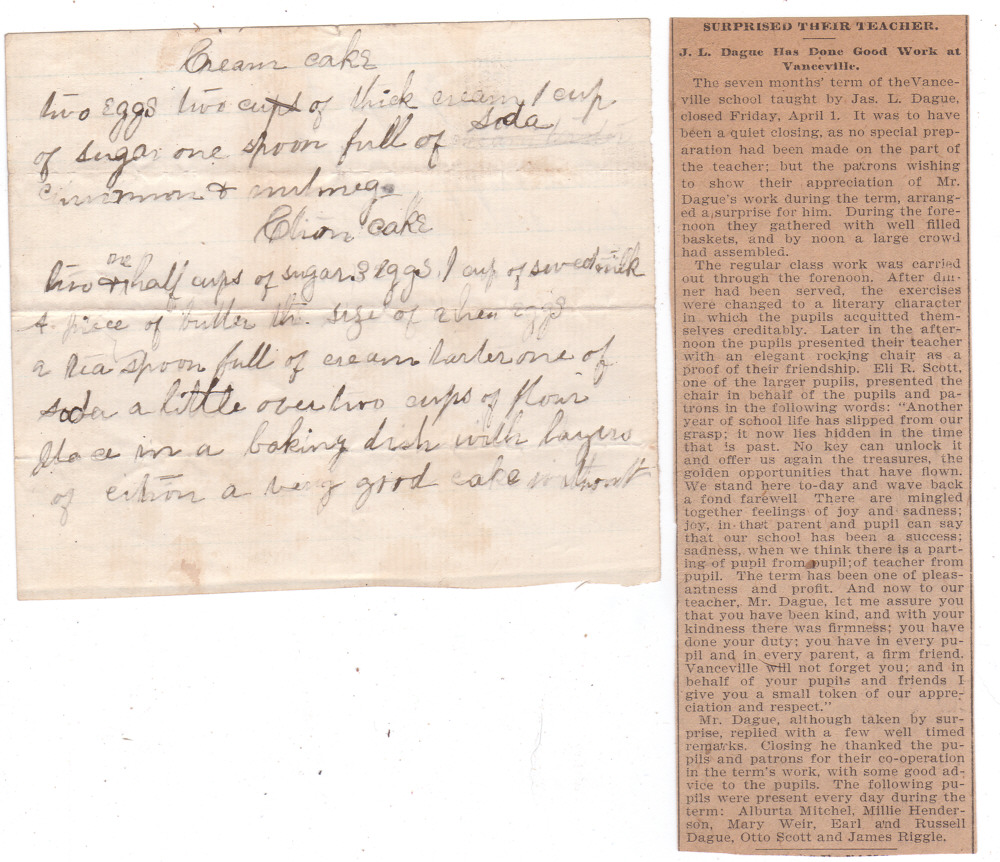 Cream cake
two eggs two cups of thick cream 1 cup
of sugar one spoon full of soda
cinnmon & nutmeg
Citron cake
two & one half cups of sugar 3 eggs 1 cup of sweet milk
A piece of butter the size of a hen eggs
a tea spoon full of cream tarter one of
soda a little over two cups of flour
Place in a baking dish with layers
of citron a very good cake without
SURPRISED THEIR TEACHER.
J. L. Dague Has Done Good Work at
Vanceville.
The seven months' term of the Vance-
ville school taught by Jas. L. Dague,
closed Friday, April 1. It was to have
been a quiet closing, as no special prep-
aration had been made on the part of
the teacher; but the patrons wishing
to show their appreciation of Mr.
Dague's work during the term, arrang-
ed a surprise for him. During the fore-
noon they gathered with well filled
baskets, and by noon a large crowd
had assembled.
The regular class work was carried
out through the forenoon. After din-
ner had been served, the exercises
were changed to a literary character
in which the pupils acquitted them-
selves creditably. Later in the after-
noon the pupils presented their teacher
with an elegant rocking chair as a
proof of their friendship. Eli R. Scott,
one of the larger pupils, presented the
chair in behalf of the pupils and pa-
trons in the following words: "Another
year of school life has slipped from our
grasp; it now lies hidden in the time
that is past. No key can unlock it
and offer us again the treasures, the
golden opportunities that have flown.
We stand here to-day and wave back
a fond farewell There are mingled
together feelings of joy and sadness;
joy, in that parent and pupil can say
that our school has been a success;
sadness, when we think there is a part-
ing of pupil from pupil; of teacher from
pupil. The term has been one of pleas-
antness and profit. And now to our
teacher, Mr. Dague, let me assure you
that you have been kind, and with your
kindness there was firmness; you have
done your duty; you have in every pu-
pil and in every parent, a firm friend.
Vanceville will not forget you; and in
behalf of your pupils and friends I
give you a small token of our appre-
ciation and respect."
Mr. Dague, although taken by sur-
prise, replied with a few well timed
remarks. Closing he thanked the pu-
pils and patrons for their co-operation
in the term's work, with some good ad-
vice to the pupils. The following pu-
pils were present every day during the
term: Alburta Mitchel, Millie Hender-
son, Mary Weir, Earl and Russell
Dague, Otto Scott and James Riggle.